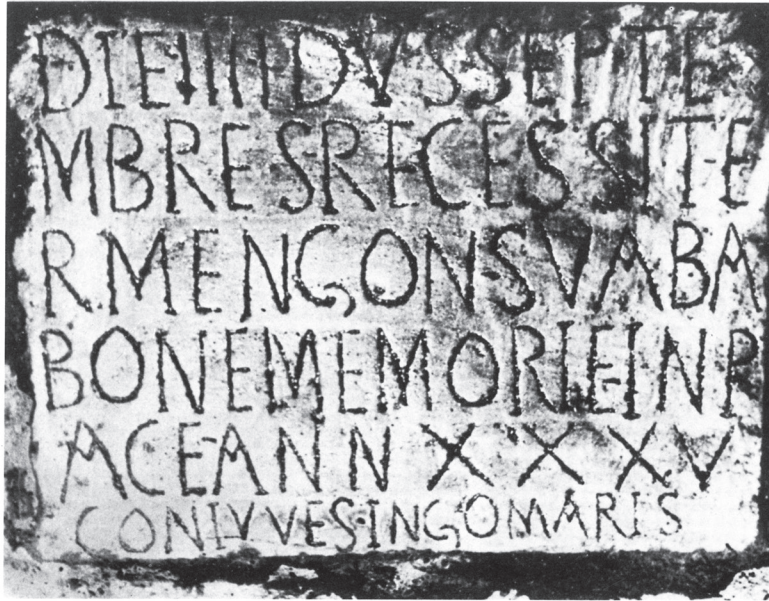 DIE IIII DVS SEPTE
MBRES RECESSIT E
RMENGON SVABA
BONE MEMORIE IN P
ACE ANN XXXV
CONIVVES INGOMARIS